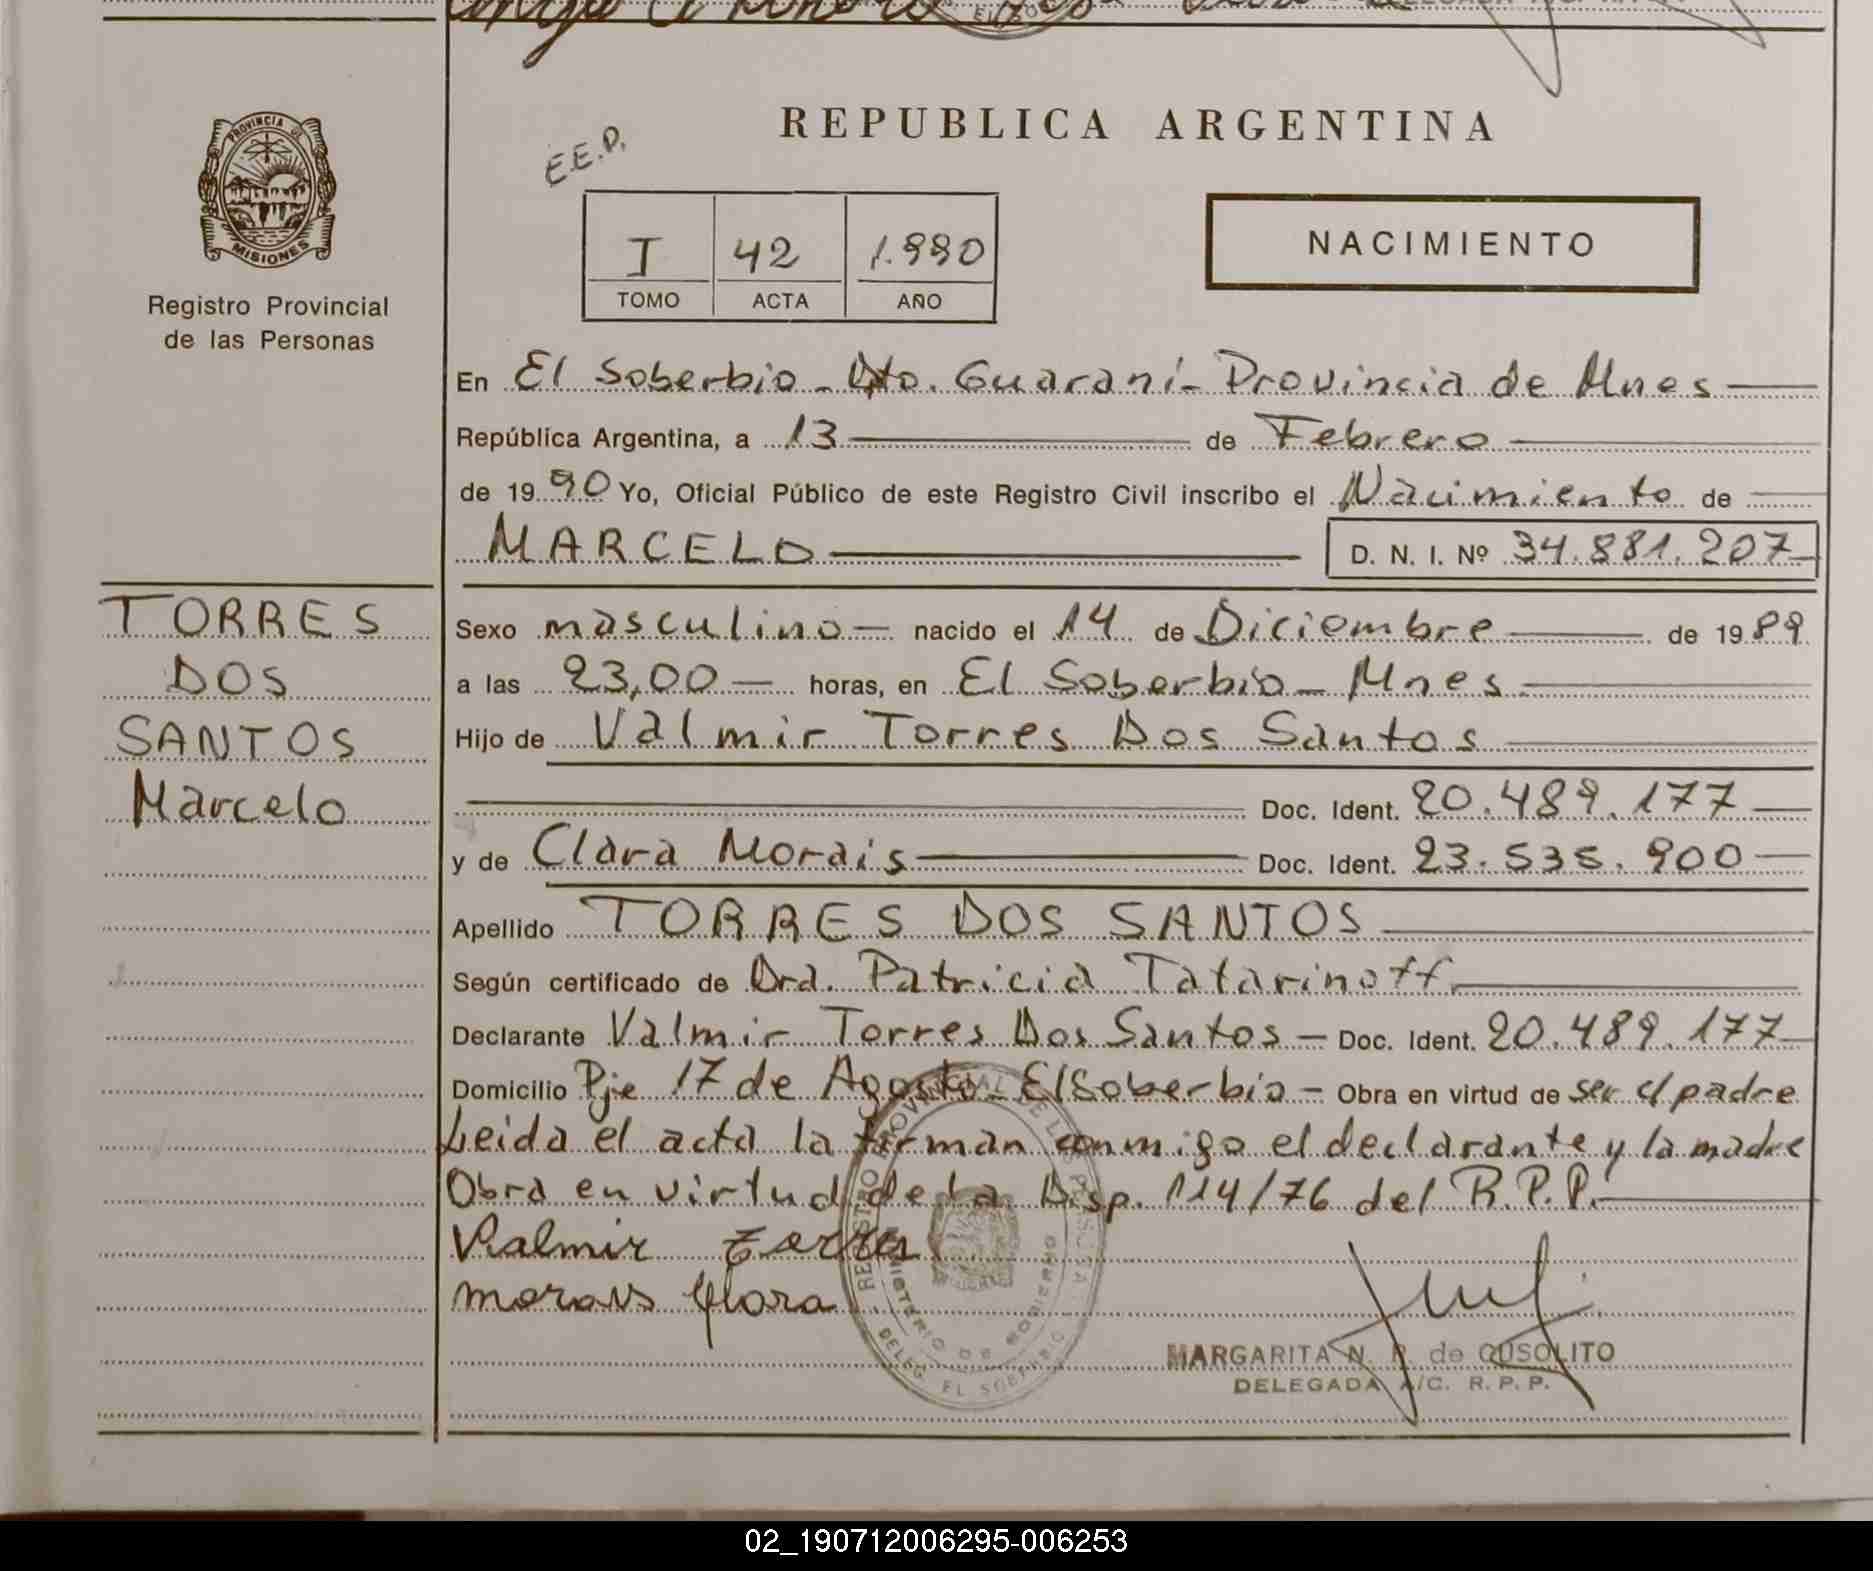 REPUBLICA ARGENTINA
E.E.D.
PROVINCIA DE
MISIONES
Registro Provincial
de las Personas
I 42 1.990
TOMO ACTA AÑO
NACIMIENTO
En El Soberbio - Dto. Guaraní - Provincia de Mnes
República Argentina, a 13 de Febrero
de 1990 Yo, Oficial Público de este Registro Civil inscribo el Nacimiento de
MARCELO D. N. I. Nº 34.881.207
TORRES
DOS
SANTOS
Marcelo
Sexo masculino - nacido el 14 de Diciembre de 1989
a las 23,00 - horas, en El Soberbio - Mnes
Hijo de Valmir Torres Dos Santos
Doc. Ident. 20.489.177
y de Clara Morais Doc. Ident. 23.535.900
Apellido TORRES DOS SANTOS
Según certificado de Dra. Patricia Tatarinoff
Declarante Valmir Torres Dos Santos - Doc. Ident. 20.489.177
Domicilio Pje 17 de Agosto - El Soberbio - Obra en virtud de ser el padre
Leida el acta la firman conmigo el declarante y la madre
Obra en virtud de la Disp. 114/76 del R.P.P.
Valmir Torres
morais Clora
REGISTRO PROVINCIAL DE LAS PERSONAS
MINISTERIO DE GOBIERNO
DELEG. EL SOBERBIO
MARGARITA N. R. de CUSOLITO
DELEGADA A/C. R. P. P.
02_190712006295-006253